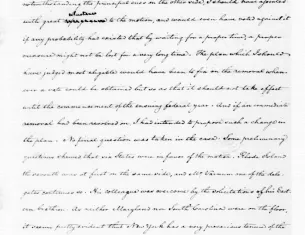 voted the leading & the principal ones on the other side, I should have assented
with great reluctance to the motion, and would even have voted against it
if any probability had existed that by waiting for a proper time, a proper
measure might not be lost for a very long time. The plan which I should
have judged most eligible would have been to fix on the removal when-
ever a vote could be obtained but so as that it should not take effect
until the commencement of the ensuing federal year. And if an immediate
removal had been resolved on I had intended to propose such a change in
the plan. No final question was taken in the case. Some preliminary
questions shewed that six States were in favor of the motion. Rhode Island
the seventh was at first on the same side, and Mr Varnum one of the dele-
gates continues so. His colleague was overcome by the solicitations of his East-
ern brethren. As neither Maryland nor South Carolina were on the floor,
it seems pretty evident that New York has a very precarious tenure of the